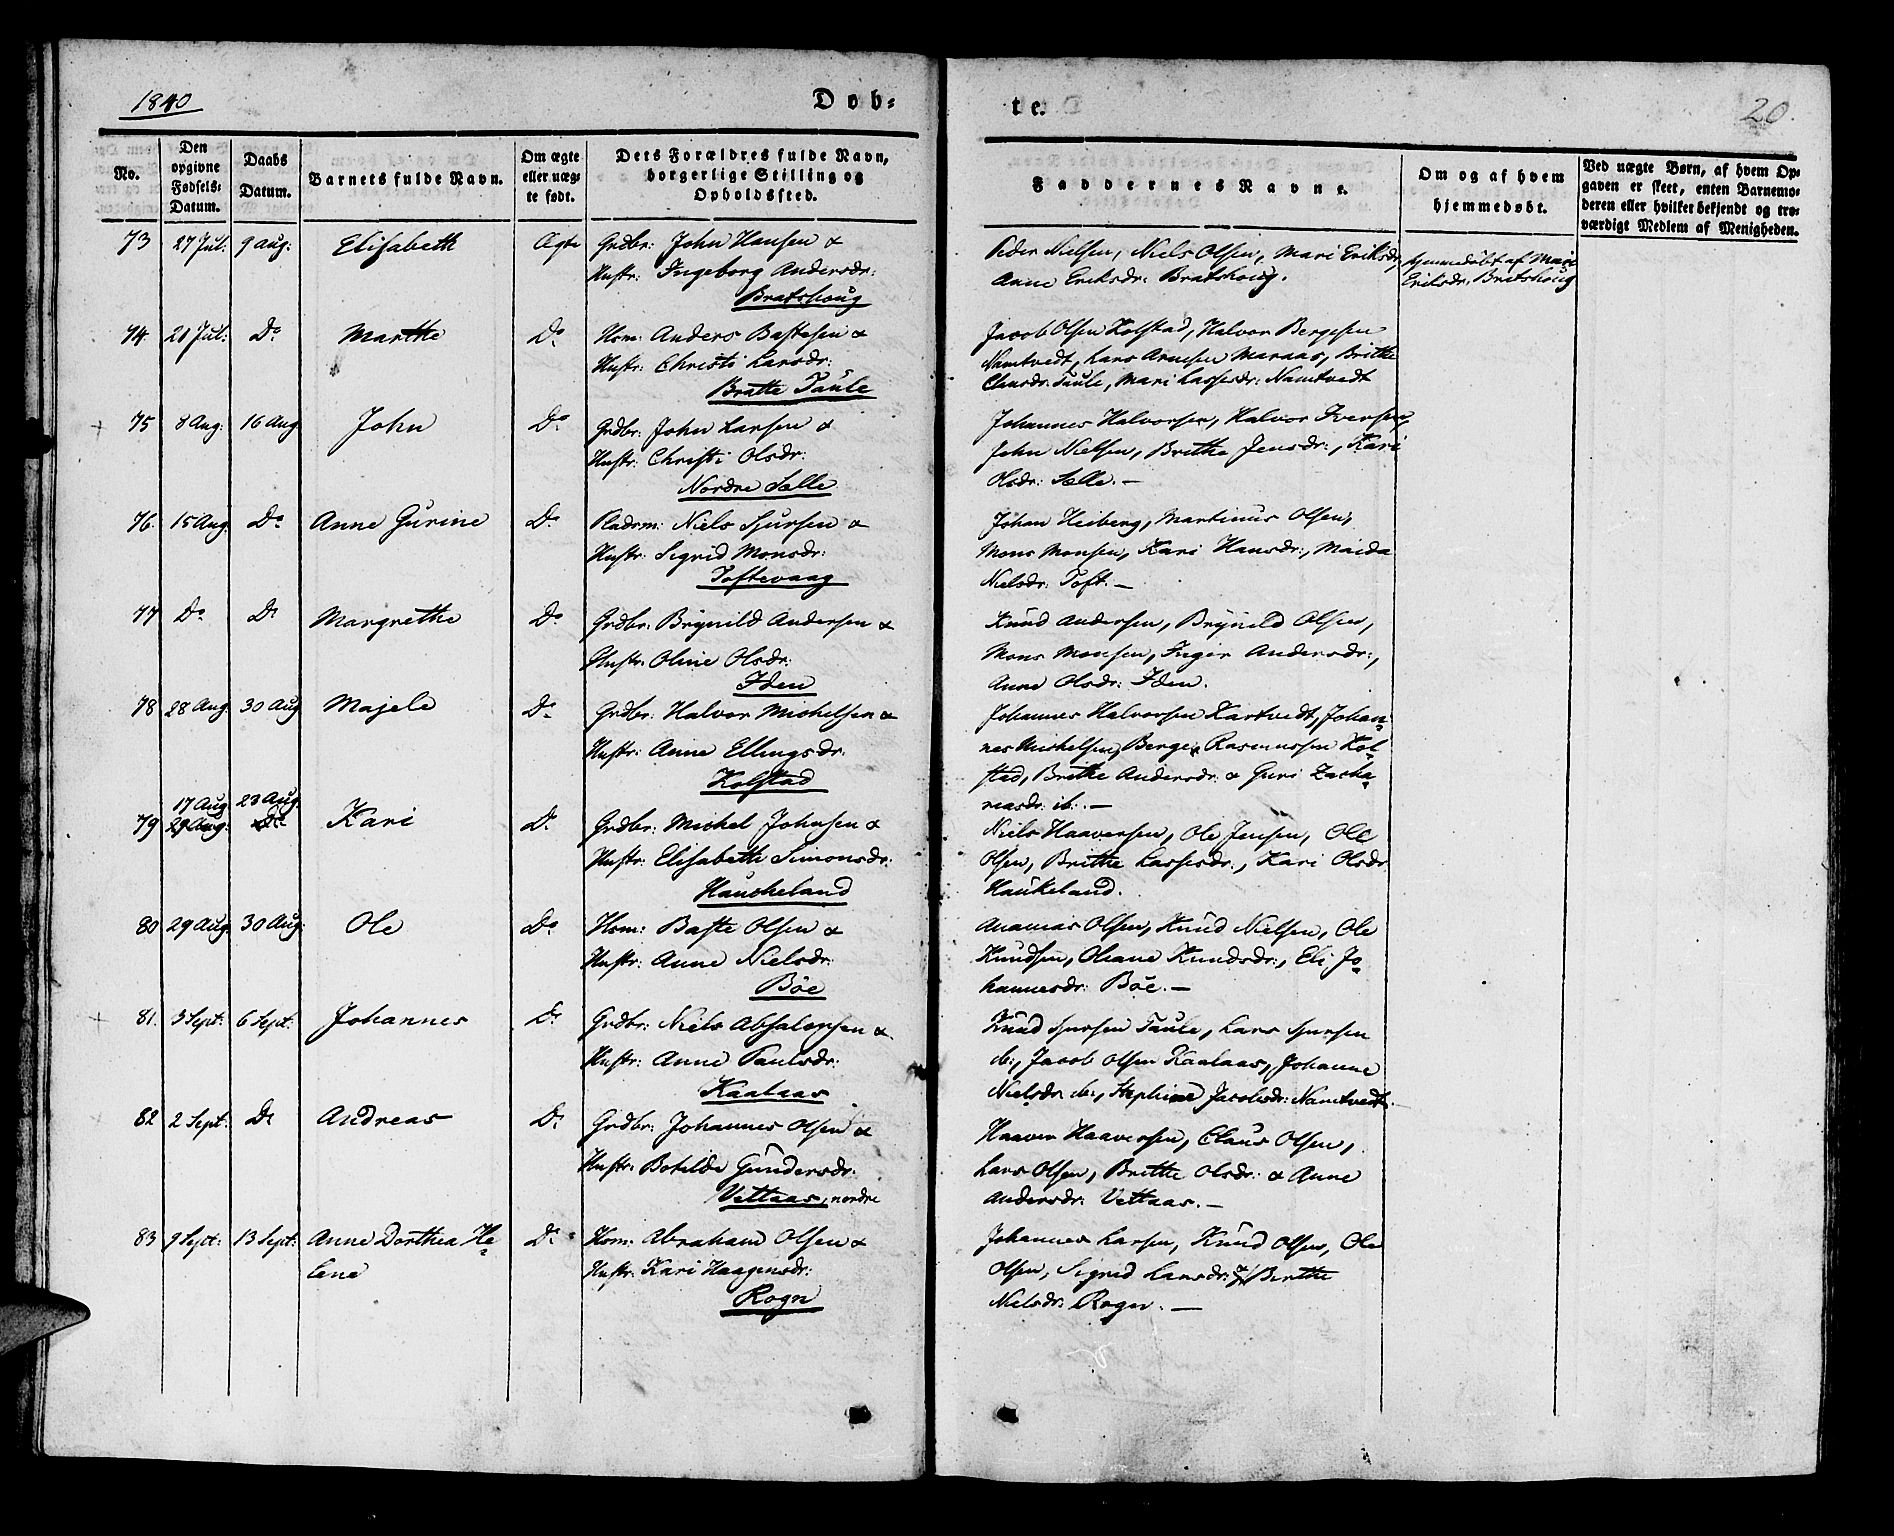 1840
Døb-
te.
20.
No.
Den opgivne Fødsels-Datum.
Daabs Datum.
Barnets fulde Navn.
Om ægte eller uæg-te født.
Dets Forældres fulde Navn, borgerlige Stilling og Opholdssted.
Faddernes Navne.
Om og af hvem hjemmedøbt.
Ved uægte Børn, af hvem Op-gaven er skeet, enten Barnemo-deren eller hvilket bekjendt og tro-værdigt Medlem af Menigheden.
73 27 Jul: 9 Aug: Elisabeth Ægte Grdbr: John Hansen &
Hustr: Ingeborg Andersdr:
Bratshoug
Peder Nielsen, Niels Olsen, Mari Eriksdr,
Anne Eriksdr: Bratshoug.
hjemmedöbt af Mari
Eriksdr: Bratshoug
74. 28 Jul: Do Marthe Do Hsm: Anders Bastesen &
Hustr: Christi Larsdr:
Bratte Taule
Jacob Olsen Kolstad, Halvor Bergesen
Namtvedt, Lars Arnesen Maraas, Brithe
Clausdr: Taule, Mari Lassesdr: Namtvedt
75 8 Aug: 16 Aug John Do Grdbr: John Larsen &
Hustr: Christi Olsdr:
Nordre Sælle
Johannes Halvorsen, Halvor Iversen,
John Nielsen, Brithe Jensdr:, Kari
Olsdr: Sælle. —
76. 15 Aug Do Anne Gurine Do Pladsm: Niels Sjursen &
Hustr: Sigrid Monsdr:
Toftevaag
Johan Heiberg, Martinus Olsen,
Mons Monsen, Kari Hansdr:,
Nielsdr: Toft. —
77 Do Do Margrethe Do Grdbr: Brynild Andersen &
Hustr: Oline Olsdr:
Iden
Knud Andersen, Brynild Olsen,
Mons Monsen, Inger Andersdr:,
Anne Olsdr: Iden.
78 28 Aug. 30 Aug Majele Do Grdbr: Halvor Michelsen &
Hustr: Anne Ellingsdr.
Kolstad
Johannes Halvorsen Kartvedt, Johan-
nes Michelsen, Berge Rasmussen Kol-
stad, Brithe Andersdr: & Guri Zacha-
reasdr: ib. —
17 Aug 23 Aug.
79 29 Aug: Do Kari Do Grdbr: Michel Johnsen &
Hustr: Elisabeth Simonsdr:
Haucheland
Niels Haaversen, Ole Jensen, Ole
Olsen, Brithe Lassesdr:, Kari Olsdr
Haukeland.
80 29 Aug 30 Aug: Ole Do Hsm: Baste Olsen &
Hustr: Anne Nielsdr:
Böe
Ananias Olsen, Knud Nielsen, Ole
Knudsen, Oliane Knudsdr:, Eli Jo-
hannesdr: Böe. —
81. 3 Sept: 6 Sept: Johannes Do Grdbr: Niels Absalonsen &
Hustr: Anne Paulsdr:
Kaalaas
Knud Sjursen Taule, Lars Sjursen
ib:, Jacob Olsen Kaalaas, Johanne
Nielsdr ib:, Stephine Jacobsdr: Namtvedt
82 2 Sept: Do Andreas Do Grdbr: Johannes Olsen &
Hustr: Botilde Gundersdr:
Vettaas, nordre
Haaver Haaversen, Claus Olsen,
Lars Olsen, Brithe Olsdr: & Anne
Andersdr: Vettaas. —
83 9 Sept: 13 Sept: Anne Dorthea He-
lene
Do Hsm: Abraham Olsen &
Hustr: Kari Haagensdr:
Rogn
Johannes Larsen, Knud Olsen, Ole
Olsen, Sigrid Larsdr: & Birthe
Nielsdr: Rogn. —